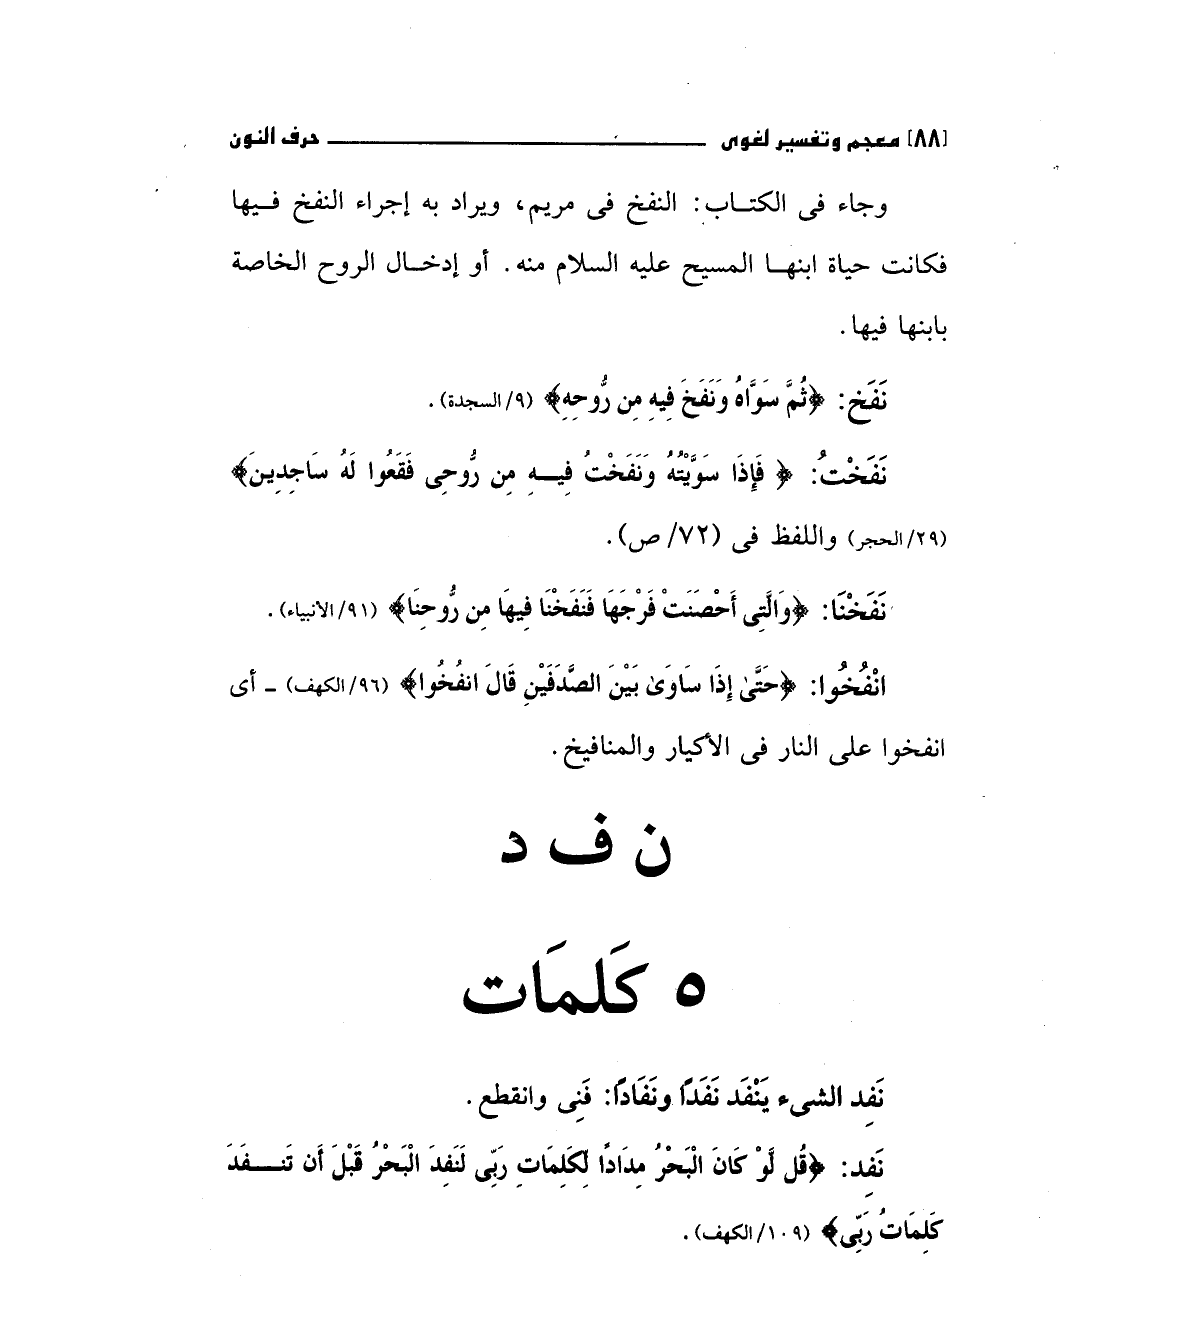 [٨٨] معجم وتفسير لغوى ــــــــــــــــــــ حرف النون
وجاء فى الكتــاب: النفخ فى مريم، ويراد به إجراء النفخ فــيها
فكانت حياة ابنهــا المسيح عليه السلام منه. أو إدخــال الروح الخاصة
بابنها فيها.
نَفَخ: ﴿ثُمَّ سَوَّاهُ وَنَفَخَ فِيهِ مِن رُّوحِهِ﴾ (٩/ السجدة).
نَفَخْتُ: ﴿ فَإِذَا سَوَّيْتُهُ وَنَفَخْتُ فِيــهِ مِن رُّوحِى فَقَعُوا لَهُ سَاجِدِينَ﴾
(٢٩/ الحجر) واللفظ فى (٧٢/ ص).
نَفَخْنَا: ﴿وَالَّتِى أَحْصَنَتْ فَرْجَهَا فَنَفَخْنَا فِيهَا مِن رُّوحِنَا﴾ (٩١/ الأنبياء).
انْفُخُوا: ﴿حَتَّىٰ إِذَا سَاوَىٰ بَيْنَ الصَّدَفَيْنِ قَالَ انفُخُوا﴾ (٩٦/ الكهف) ـ أى
انفخوا على النار فى الأكيار والمنافيخ.
ن ف د
٥ كَلِمَات
نَفِد الشىء يَنْفَد نَفَدًا ونَفَادًا: فَنِى وانقطع.
نَفِد: ﴿قُل لَّوْ كَانَ الْبَحْرُ مِدَادًا لِّكَلِمَاتِ رَبِّى لَنَفِدَ الْبَحْرُ قَبْلَ أَن تَنــفَدَ
كَلِمَاتُ رَبِّى﴾ (١٠٩/ الكهف).